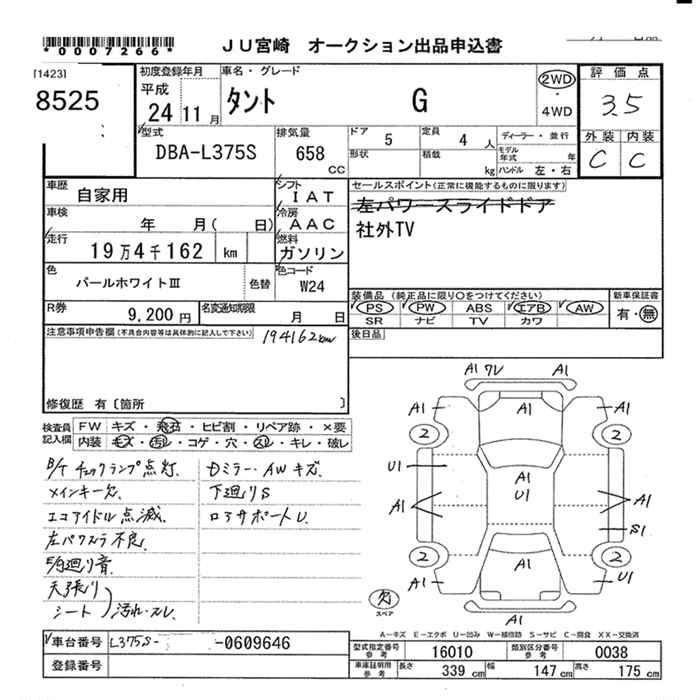 *0007266*
JU宮崎 オークション出品申込書
[1423]
8525
初度登録年月
平成
24 11 月
車名・グレード
タント G
2WD
・
4WD
評価点
3.5
外装 内装
C C
型式
DBA-L375S
排気量
658
CC
ドア 5
定員 4 人
形状
積載 kg
ディーラー・並行
モデル年式 年
ハンドル 左・右
車歴
自家用
シフト
IAT
車検
年 月( 日)
冷房
AAC
走行
19万4千162 km
燃料
ガソリン
色
パールホワイトⅢ
色替
色コード
W24
R券
9,200 円
名変通知期限
月 日
セールスポイント(正常に機能するものに限ります)
左パワースライドドア
社外TV
装備品 (純正品に限り○をつけてください)
PS PW ABS エアB AW
SR ナビ TV カワ
新車保証書
有・無
後日品
注意事項申告欄(不具合内容等は具体的に記入して下さい)
194162km
修復歴 有〔箇所 〕
検査員
記入欄
FW キズ・飛石・ヒビ割・リペア跡・×要
内装 キズ・汚れ・コゲ・穴・スレ・キレ・破レ
チェックランプ点灯.
メインキー欠
エコアイドル点滅.
左パワスラ不良
廻り音
天張り
シート 汚れ・スレ
Dミラー・AWキズ.
下廻りS
ロアサポートU.
A1 ワレ A1
A1 A1 A1
2 2
U1 A1 U1
A1 A1
S1
2 2
A1 A1 U1
欠
スペア
A1
A-キズ E-エクボ U-凹み W-補修跡 S-サビ C-腐食 XX-交換済
車台番号 L375S- -0609646
登録番号
型式指定番号
参考
16010
類別区分番号
参考
0038
車庫証明用
参考
長さ 339 cm 幅 147 cm 高さ 175 cm